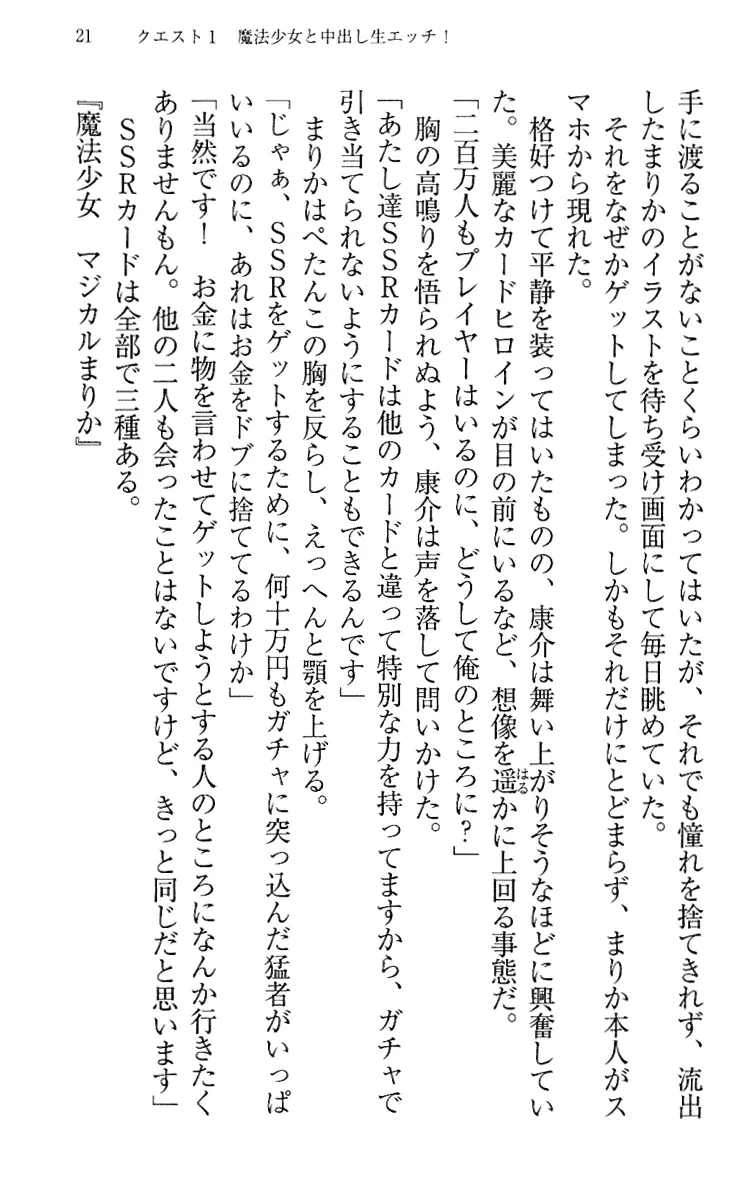 21　クエスト1　魔法少女と中出し生エッチ！
手に渡ることがないことくらいわかってはいたが、それでも憧れを捨てきれず、流出
したまりかのイラストを待ち受け画面にして毎日眺めていた。
　それをなぜかゲットしてしまった。しかもそれだけにとどまらず、まりか本人がス
マホから現れた。
　格好つけて平静を装ってはいたものの、康介は舞い上がりそうなほどに興奮してい
た。美麗なカードヒロインが目の前にいるなど、想像を遥はるかに上回る事態だ。
「二百万人もプレイヤーはいるのに、どうして俺のところに？」
　胸の高鳴りを悟られぬよう、康介は声を落して問いかけた。
「あたし達ＳＳＲカードは他のカードと違って特別な力を持ってますから、ガチャで
引き当てられないようにすることもできるんです」
　まりかはぺたんこの胸を反らし、えっへんと顎を上げる。
「じゃぁ、ＳＳＲをゲットするために、何十万円もガチャに突っ込んだ猛者がいっぱ
いいるのに、あれはお金をドブに捨ててるわけか」
「当然です！　お金に物を言わせてゲットしようとする人のところになんか行きたく
ありませんもん。他の二人も会ったことはないですけど、きっと同じだと思います」
　ＳＳＲカードは全部で三種ある。
『魔法少女　マジカルまりか』